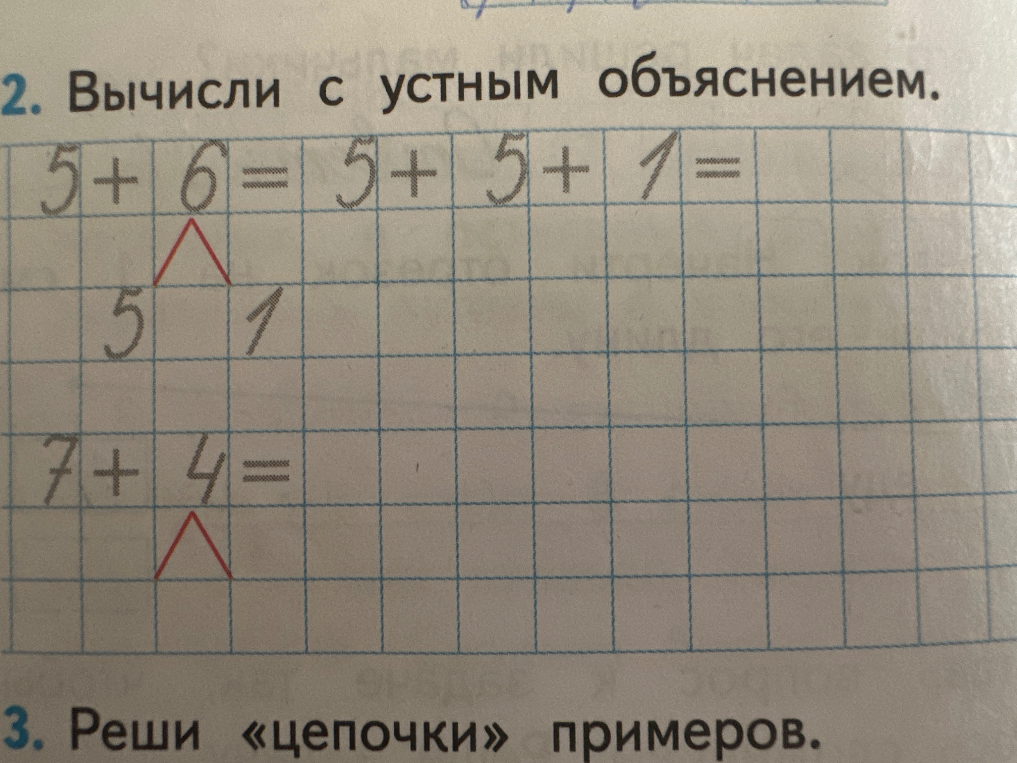 2. Вычисли с устным объяснением.
5 + 6 = 5 + 5 + 1 =
5 1
7 + 4 =
3. Реши «цепочки» примеров.